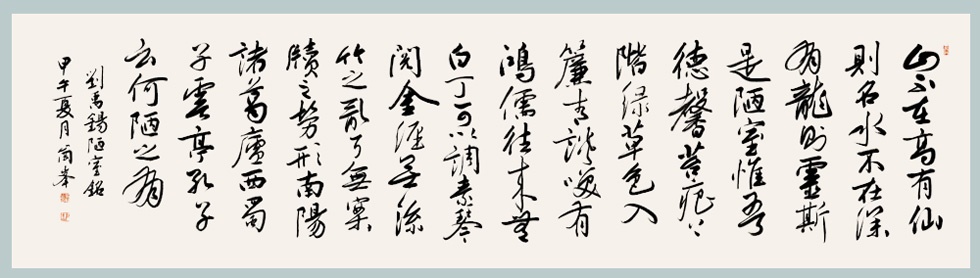 山不在高有仙
則名水不在深
有龍則靈斯
是陋室惟吾
德馨苔痕上
階緑草色入
簾青談笑有
鴻儒往來無
白丁可以調素琴
閱金經無絲
竹之亂耳無案
牘之勞形南陽
諸葛廬西蜀
子雲亭孔子
云何陋之有
劉禹錫陋室銘
甲午夏月